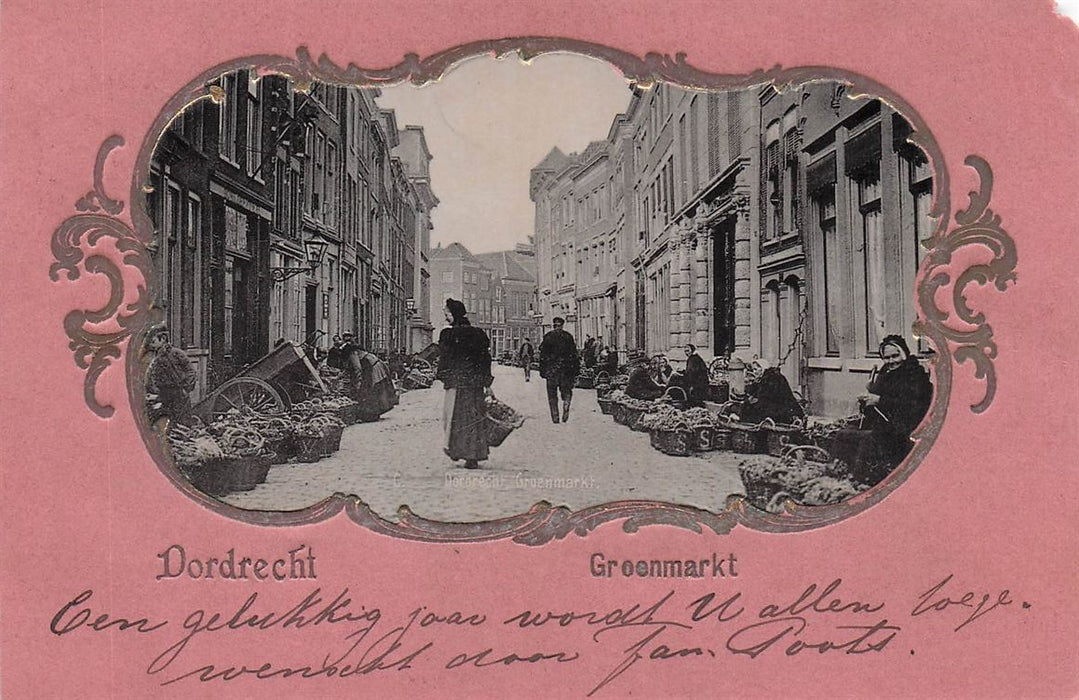 S S
C. Dordrecht, Groenmarkt.
Dordrecht Groenmarkt
Een gelukkig jaar wordt U allen toege-
wenscht door fam. Poots.